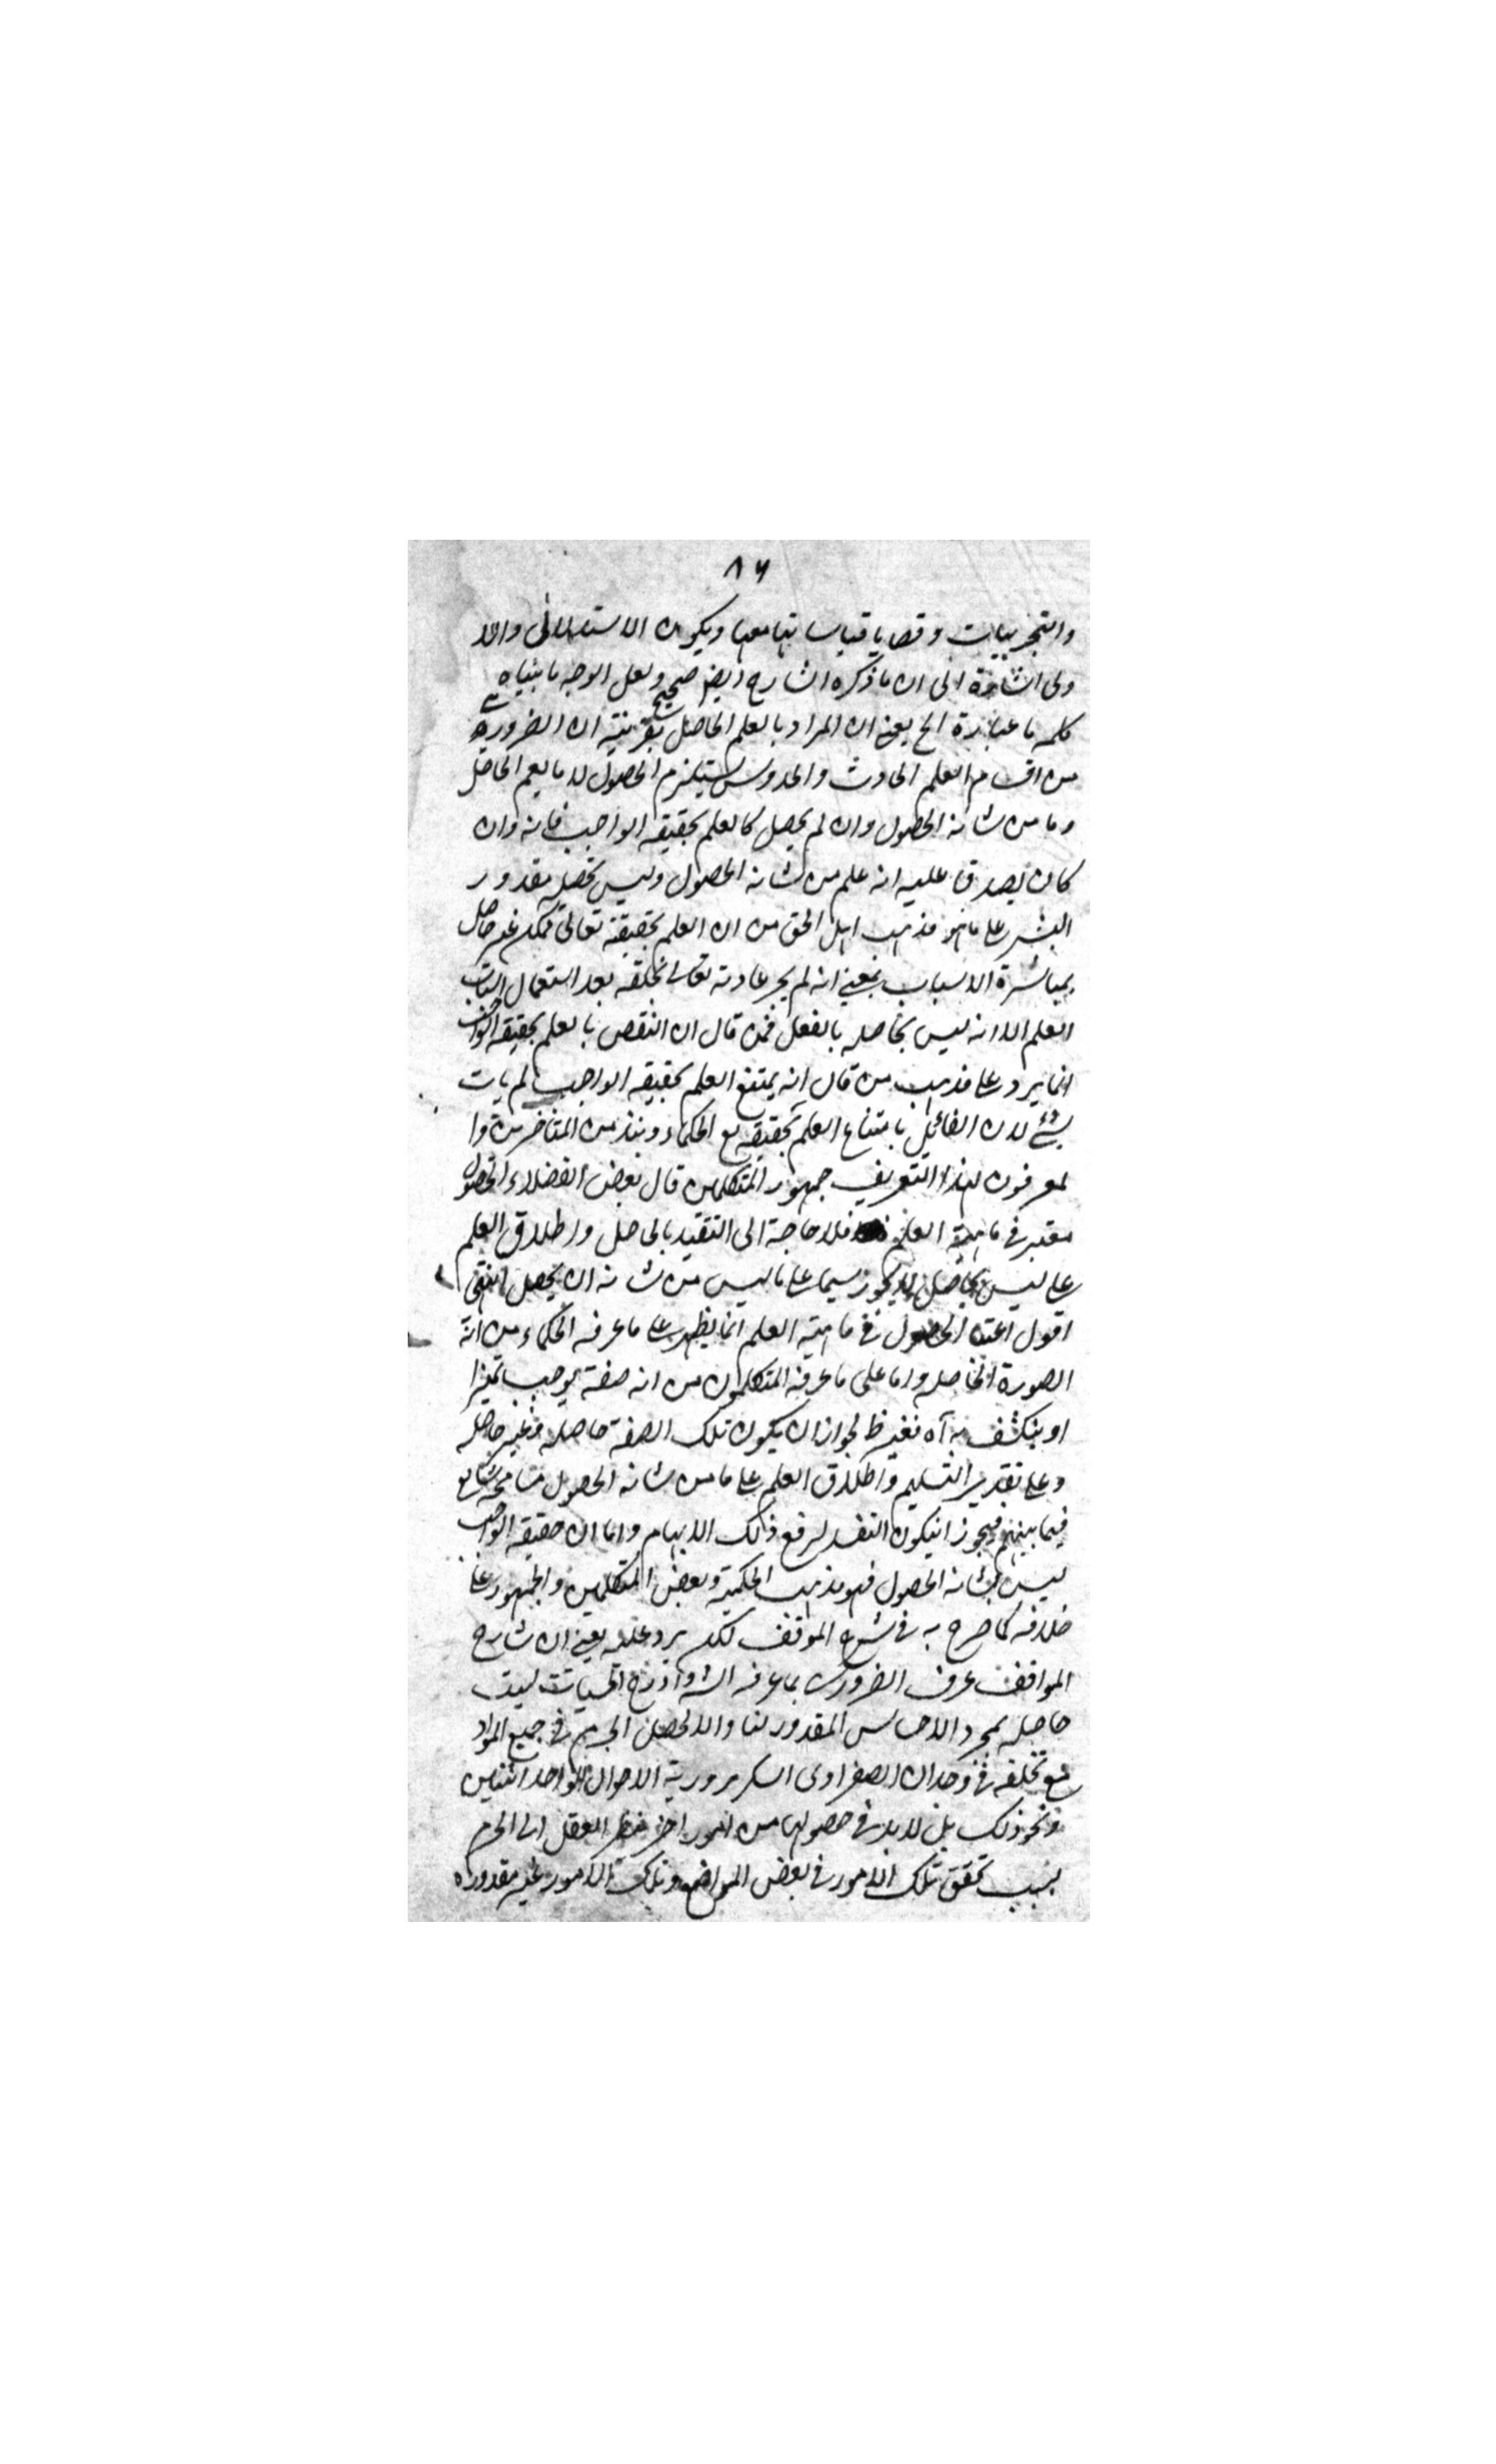 ٨٦
والتجربيات وقضايا قياساتها معها ويكون الاستدلالى والا
ولى اشارة الى ان ما ذكره الشارح ايضا صحيح ولعل الوجه ما بيناه
كلمة ما عبارة الخ يعنى ان المراد بالعلم الحاصل بقرينة ان الضرورى
من اقسام العلم الحادث والحدوث يستلزم الحصول لا ما يعم الحاصل
وما من شانه الحصول وان لم يحصل كالعلم بحقيقة الواجب فانه وان
كان يصدق عليه انه علم من شانه الحصول وليس تحصيله مقدور
البشر على ما هو مذهب اهل الحق من ان العلم بحقيقته تعالى ممكن غير حاصل
بمباشرة الاسباب بمعنى انه لم يجر عادته تعالى بخلقه بعد استعمال اسباب
العلم الا انه ليس بحاصل بالفعل فمن قال ان النقض بالعلم بحقيقة الواجب
انما يرد على مذهب من قال انه يمتنع العلم بحقيقة الواجب لم يات
بشئ لان القائل بامتناع العلم بحقيقته مع الحكماء ونبذ من المتاخرين وا
لمعرفون لهذا التعريف جمهور المتكلمين قال بعض الفضلاء الحصول
معتبر فى ماهية العلم فلا حاجة الى التقييد بالحاصل واطلاق العلم
على ليس بحاصل لا يجوز سيما على ما ليس من شانه ان يحصل انتهى
اقول اعتبار الحصول فى ماهية العلم انما يظهر على ما عرفه الحكماء من انه
الصورة الحاصلة واما على ما عرفه المتكلمون من انه صفة يوجب تميزا
او ينكشف به آه فغير ظ لجواز ان يكون تلك الصفة حاصلة وغير حاصلة
وعلى تقدير التسليم واطلاق العلم على ما من شانه الحصول مسامحة شايع
فيما بينهم فيجوز انيكون التقييد لرفع ذلك الابهام واما ان حقيقة الواجب
ليس بشانه الحصول فهو مذهب الحكمية وبعض المتكلمين والجمهور على
خلافه كما صرح به فى شرح المواقف لكن يرد عليه يعنى ان شارح
المواقف عرف الضرورى بما عرفه الش وادرج الحسيات ليست
حاصلة بمجرد الاحساس المقدور لنا والا لحصل الجزم فى جميع المواد
مع تخلفه فى وجدان الصفراوى السكر مرا ورؤية الاحول الواحد اثنين
ونحو ذلك بل لا بد فى حصولها من امور اخر العقل الى الجزم
بسبب تحقق تلك الامور فى بعض المواضع وتلك الامور غير مقدورة